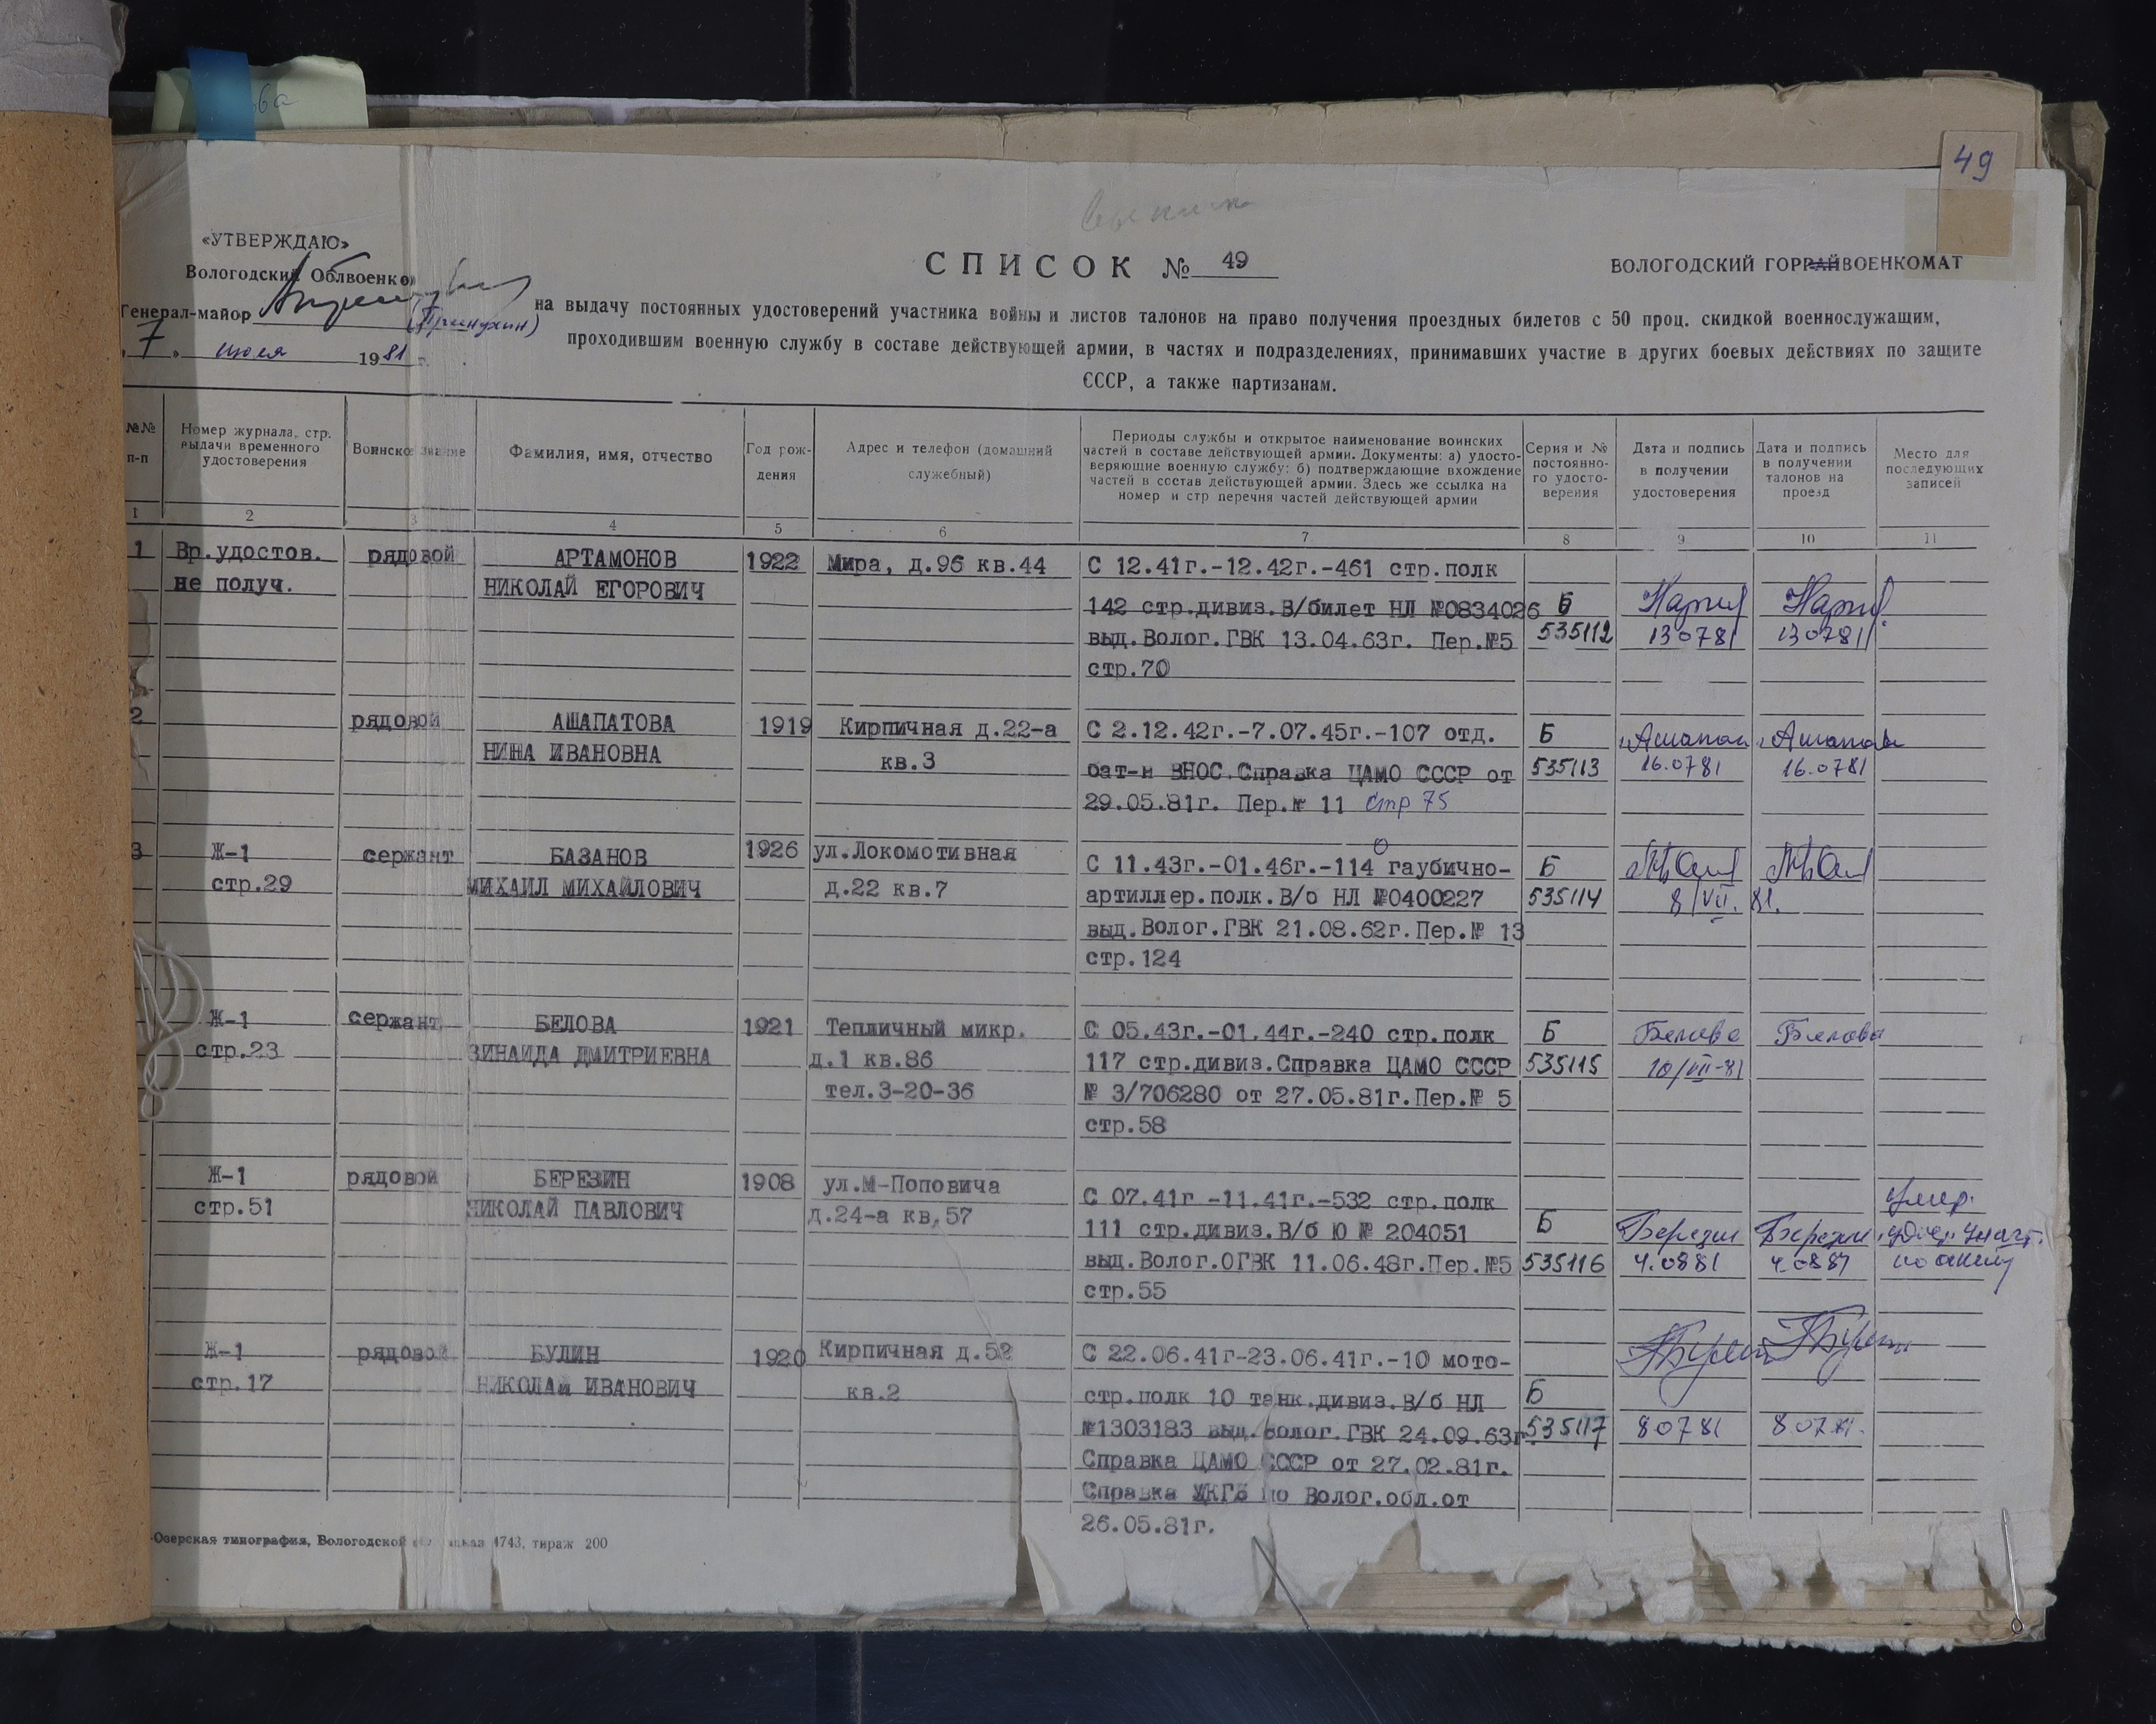 49
«УТВЕРЖДАЮ»
Вологодский Облвоенком
Генерал-майор
„7„ июля 1981 г.
СПИСОК № 49
ВОЛОГОДСКИЙ ГОРРАЙВОЕНКОМАТ
на выдачу постоянных удостоверений участника войны и листов талонов на право получения проездных билетов с 50 проц. скидкой военнослужащим,
проходившим военную службу в составе действующей армии, в частях и подразделениях, принимавших участие в других боевых действиях по защите
СССР, а также партизанам.
№№ п-п
Номер журнала, стр. выдачи временного удостоверения
Воинское звание
Фамилия, имя, отчество
Год рож-
дения
Адрес и телефон (домашний
служебный)
Периоды службы и открытое наименование воинских
частей в составе действующей армии. Документы: а) удосто-
веряющие военную службу: б) подтверждающие вхождение
частей в состав действующей армии. Здесь же ссылка на
номер и стр перечня частей действующей армии
Серия и №
постоянно-
го удосто-
верения
Дата и подпись
в получении
удостоверения
Дата и подпись
в получении
талонов на
проезд
Место для
последующих
записей
1 2 3 4 5 6 7 8 9 10 11
1 Вр.удостов. рядовой АРТАМОНОВ 1922 Мира, д.96 кв.44 С 12.41г.-12.42г.-461 стр.полк
не получ. НИКОЛАЙ ЕГОРОВИЧ
142 стр.дивиз.В/билет НЛ №0834026 Б
выд.Волог.ГВК 13.04.63г. Пер.№5 535112 130781 130781
стр.70
2 рядовой АШАПАТОВА 1919 Кирпичная д.22-а С 2.12.42г.-7.07.45г.-107 отд. Б
НИНА ИВАНОВНА кв.3 бат-н ВНОС.Справка ЦАМО СССР от 535113 16.0781 16.0781
29.05.81г. Пер.№ 11 стр 75
3 Ж-1 сержант БАЗАНОВ 1926 ул.Локомотивная С 11.43г.-01.46г.-114 гаубично- Б
стр.29 МИХАИЛ МИХАЙЛОВИЧ д.22 кв.7 артиллер.полк.В/о НЛ №0400227 535114 8/VII. 81.
выд.Волог.ГВК 21.08.62г.Пер.№ 13
стр.124
Ж-1 сержант БЕЛОВА 1921 Тепличный микр. С 05.43г.-01.44г.-240 стр.полк Б Белова Белова
стр.23 ЗИНАИДА ДМИТРИЕВНА д.1 кв.86 117 стр.дивиз.Справка ЦАМО СССР 535115 10/VII-81
тел.3-20-36 № 3/706280 от 27.05.81г.Пер.№ 5
стр.58
Ж-1 рядовой БЕРЕЗИН 1908 ул.М-Поповича С 07.41г -11.41г.-532 стр.полк умер.
стр.51 НИКОЛАЙ ПАВЛОВИЧ д.24-а кв,57 111 стр.дивиз.В/б Ю № 204051 Б Березин Березин
выд.Волог.ОГВК 11.06.48г.Пер.№5 535116 4.0881 4.0881 по акту
стр.55
Ж-1 рядовой БУЛИН 1920 Кирпичная д.52 С 22.06.41г-23.06.41г.-10 мото-
стр.17 НИКОЛАЙ ИВАНОВИЧ кв.2 стр.полк 10 танк.дивиз.В/б НЛ Б
№1303183 выд.Волог.ГВК 24.09.63г. 535117 80781 80781.
Справка ЦАМО СССР от 27.02.81г.
Справка УКГБ по Волог.обл.от
26.05.81г.
-Озерская типография, Вологодской 4743, тираж 200